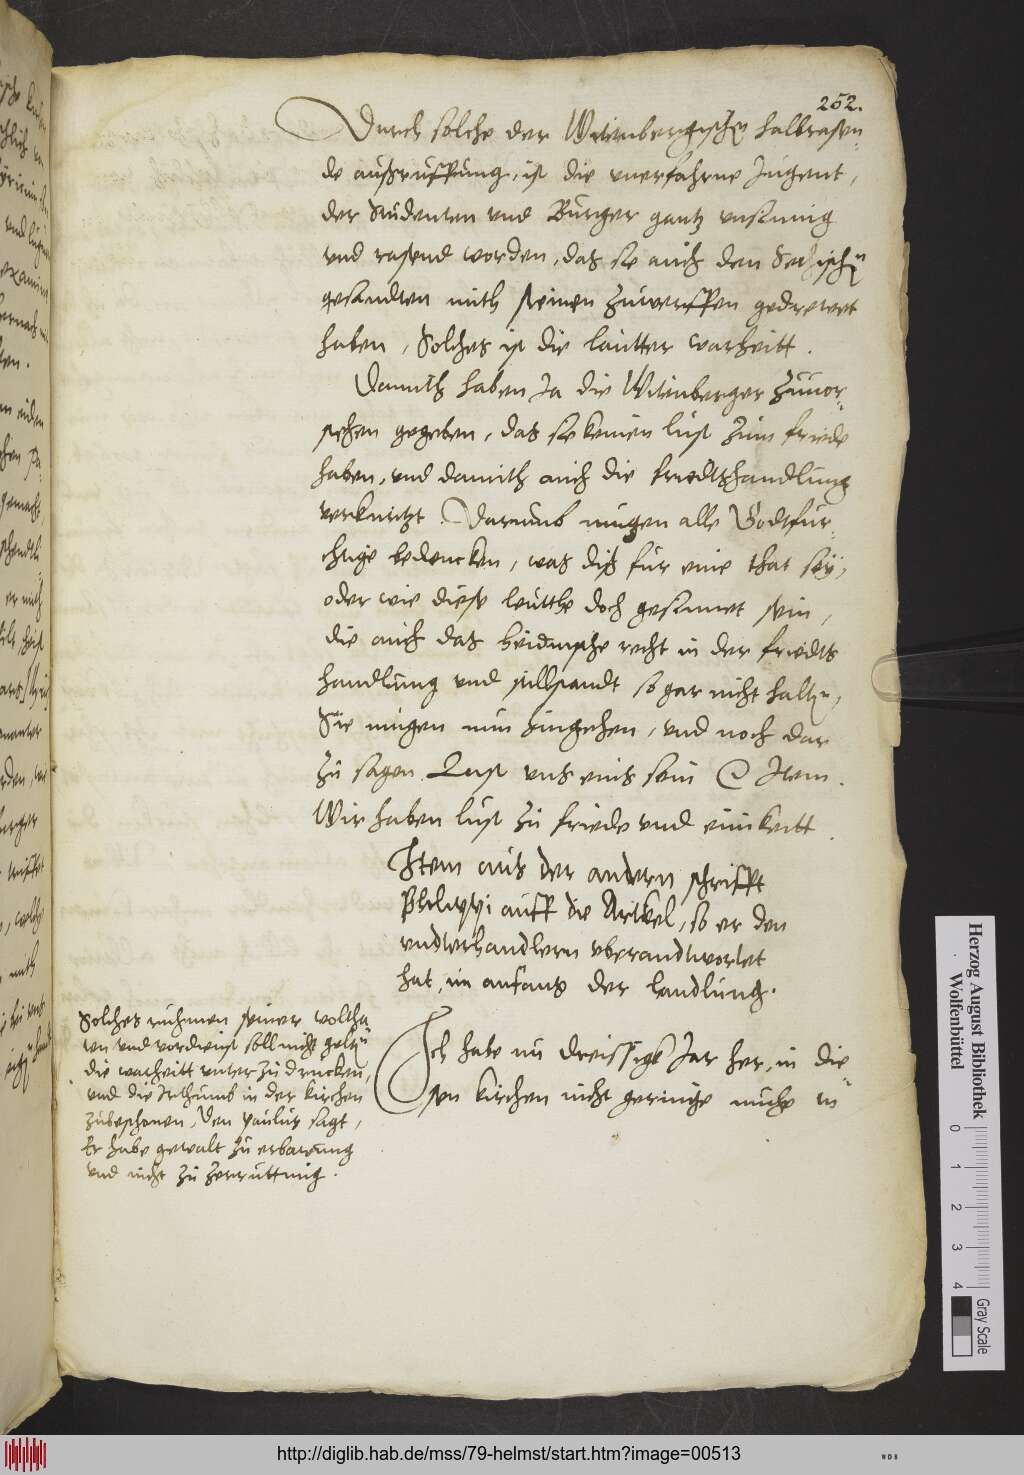 252.
Durch solche der Witenbergischen halbrasen-
de außruffung, ist die unerfahrne Jugent,
der Studenten vnd Burger gantz vnsinnig
vnd rasend worden, das sie auch den Sechsischen
gesandten mith steinen zuwerffen gedrewet
haben, Solches ist die lautter warheitt.
Damith haben Ja die Witenberger Zuuor-
stehen gegeben, das sie keinen lust zum friede
haben, vnd damith auch die friedtshandlung
verkurtzt. Darumb mugen alle Godtfur-
chtige bedencken, was diß fur eine that sey,
oder wie diese leutthe doch gesinnet sein,
die auch das heidnische recht in der friedts
handlung vnd stillstandt so gar nicht halten,
Sie mugen nun hingehen, vnd noch dar
zu sagen Last vns eins sein Item.
Wir haben lust zu friede vnd einikeitt.
Item aus der andern schrifft
Philippi auff die Artikel, so er den
vndterhandlern vberandtwortet
hat, im anfang der handlung.
Ich habe nu dreissigk Jar her, in die
sen kirchen nicht geringe muhe in
Solches ruhmen seiner woltha
ten vnd vordienst soll nicht gelten
die warheitt vnter zu drucken,
vnd die Irthumb in der kirchen
zubeschonen, Den Paulus sagt,
Er habe gewalt zu erbawung
vnd nicht zu zerruttung.
Herzog August Bibliothek
Wolfenbüttel
0 1 2 3 4
Gray Scale
http://diglib.hab.de/mss/79-helmst/start.htm?image=00513